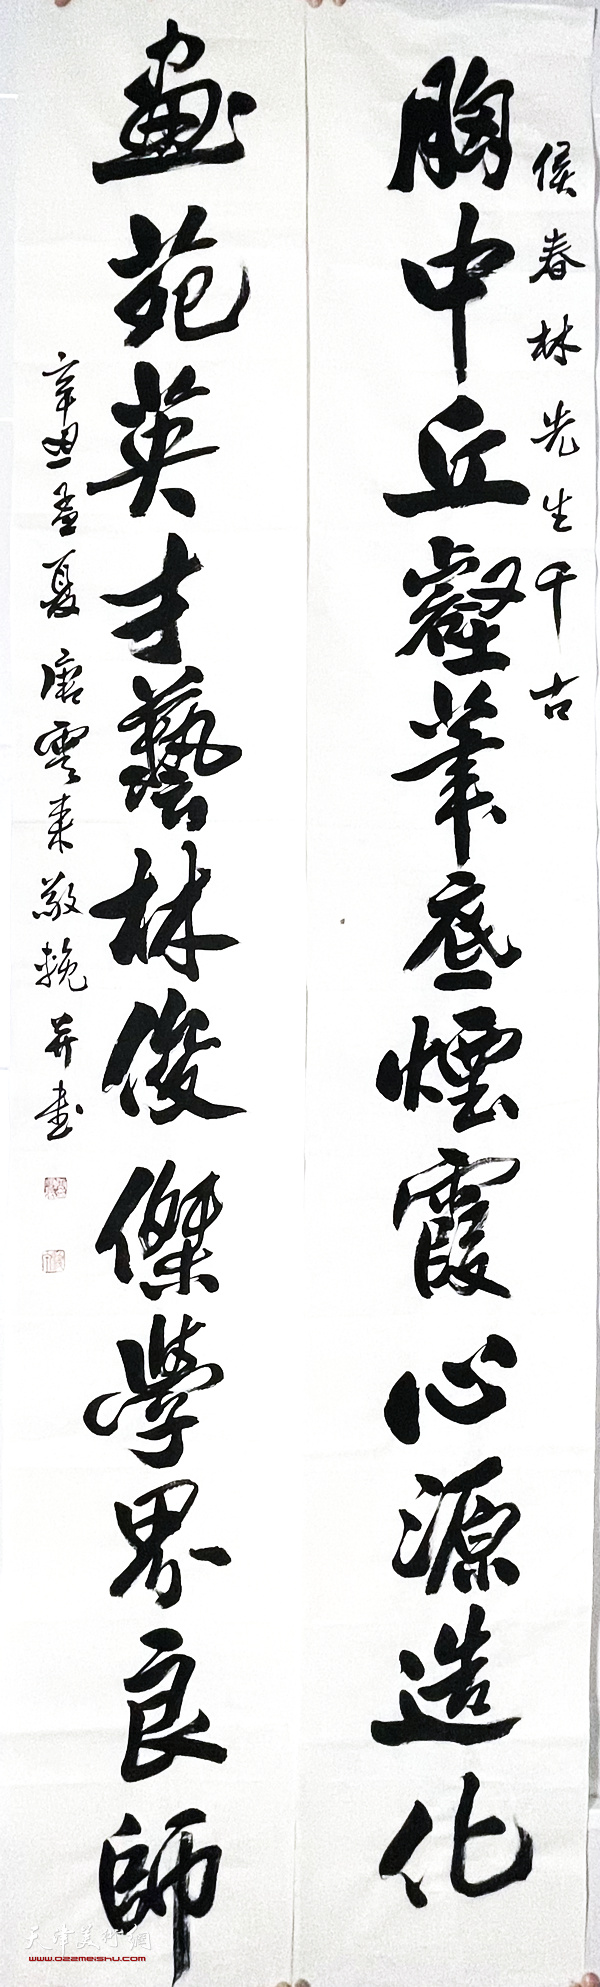 侯春林先生千古
胸中丘壑筆底煙霞心源造化
畫苑英才藝林俊傑學界良師
辛丑孟夏唐雲来敬輓并書
天津美術網
www.022meishu.com